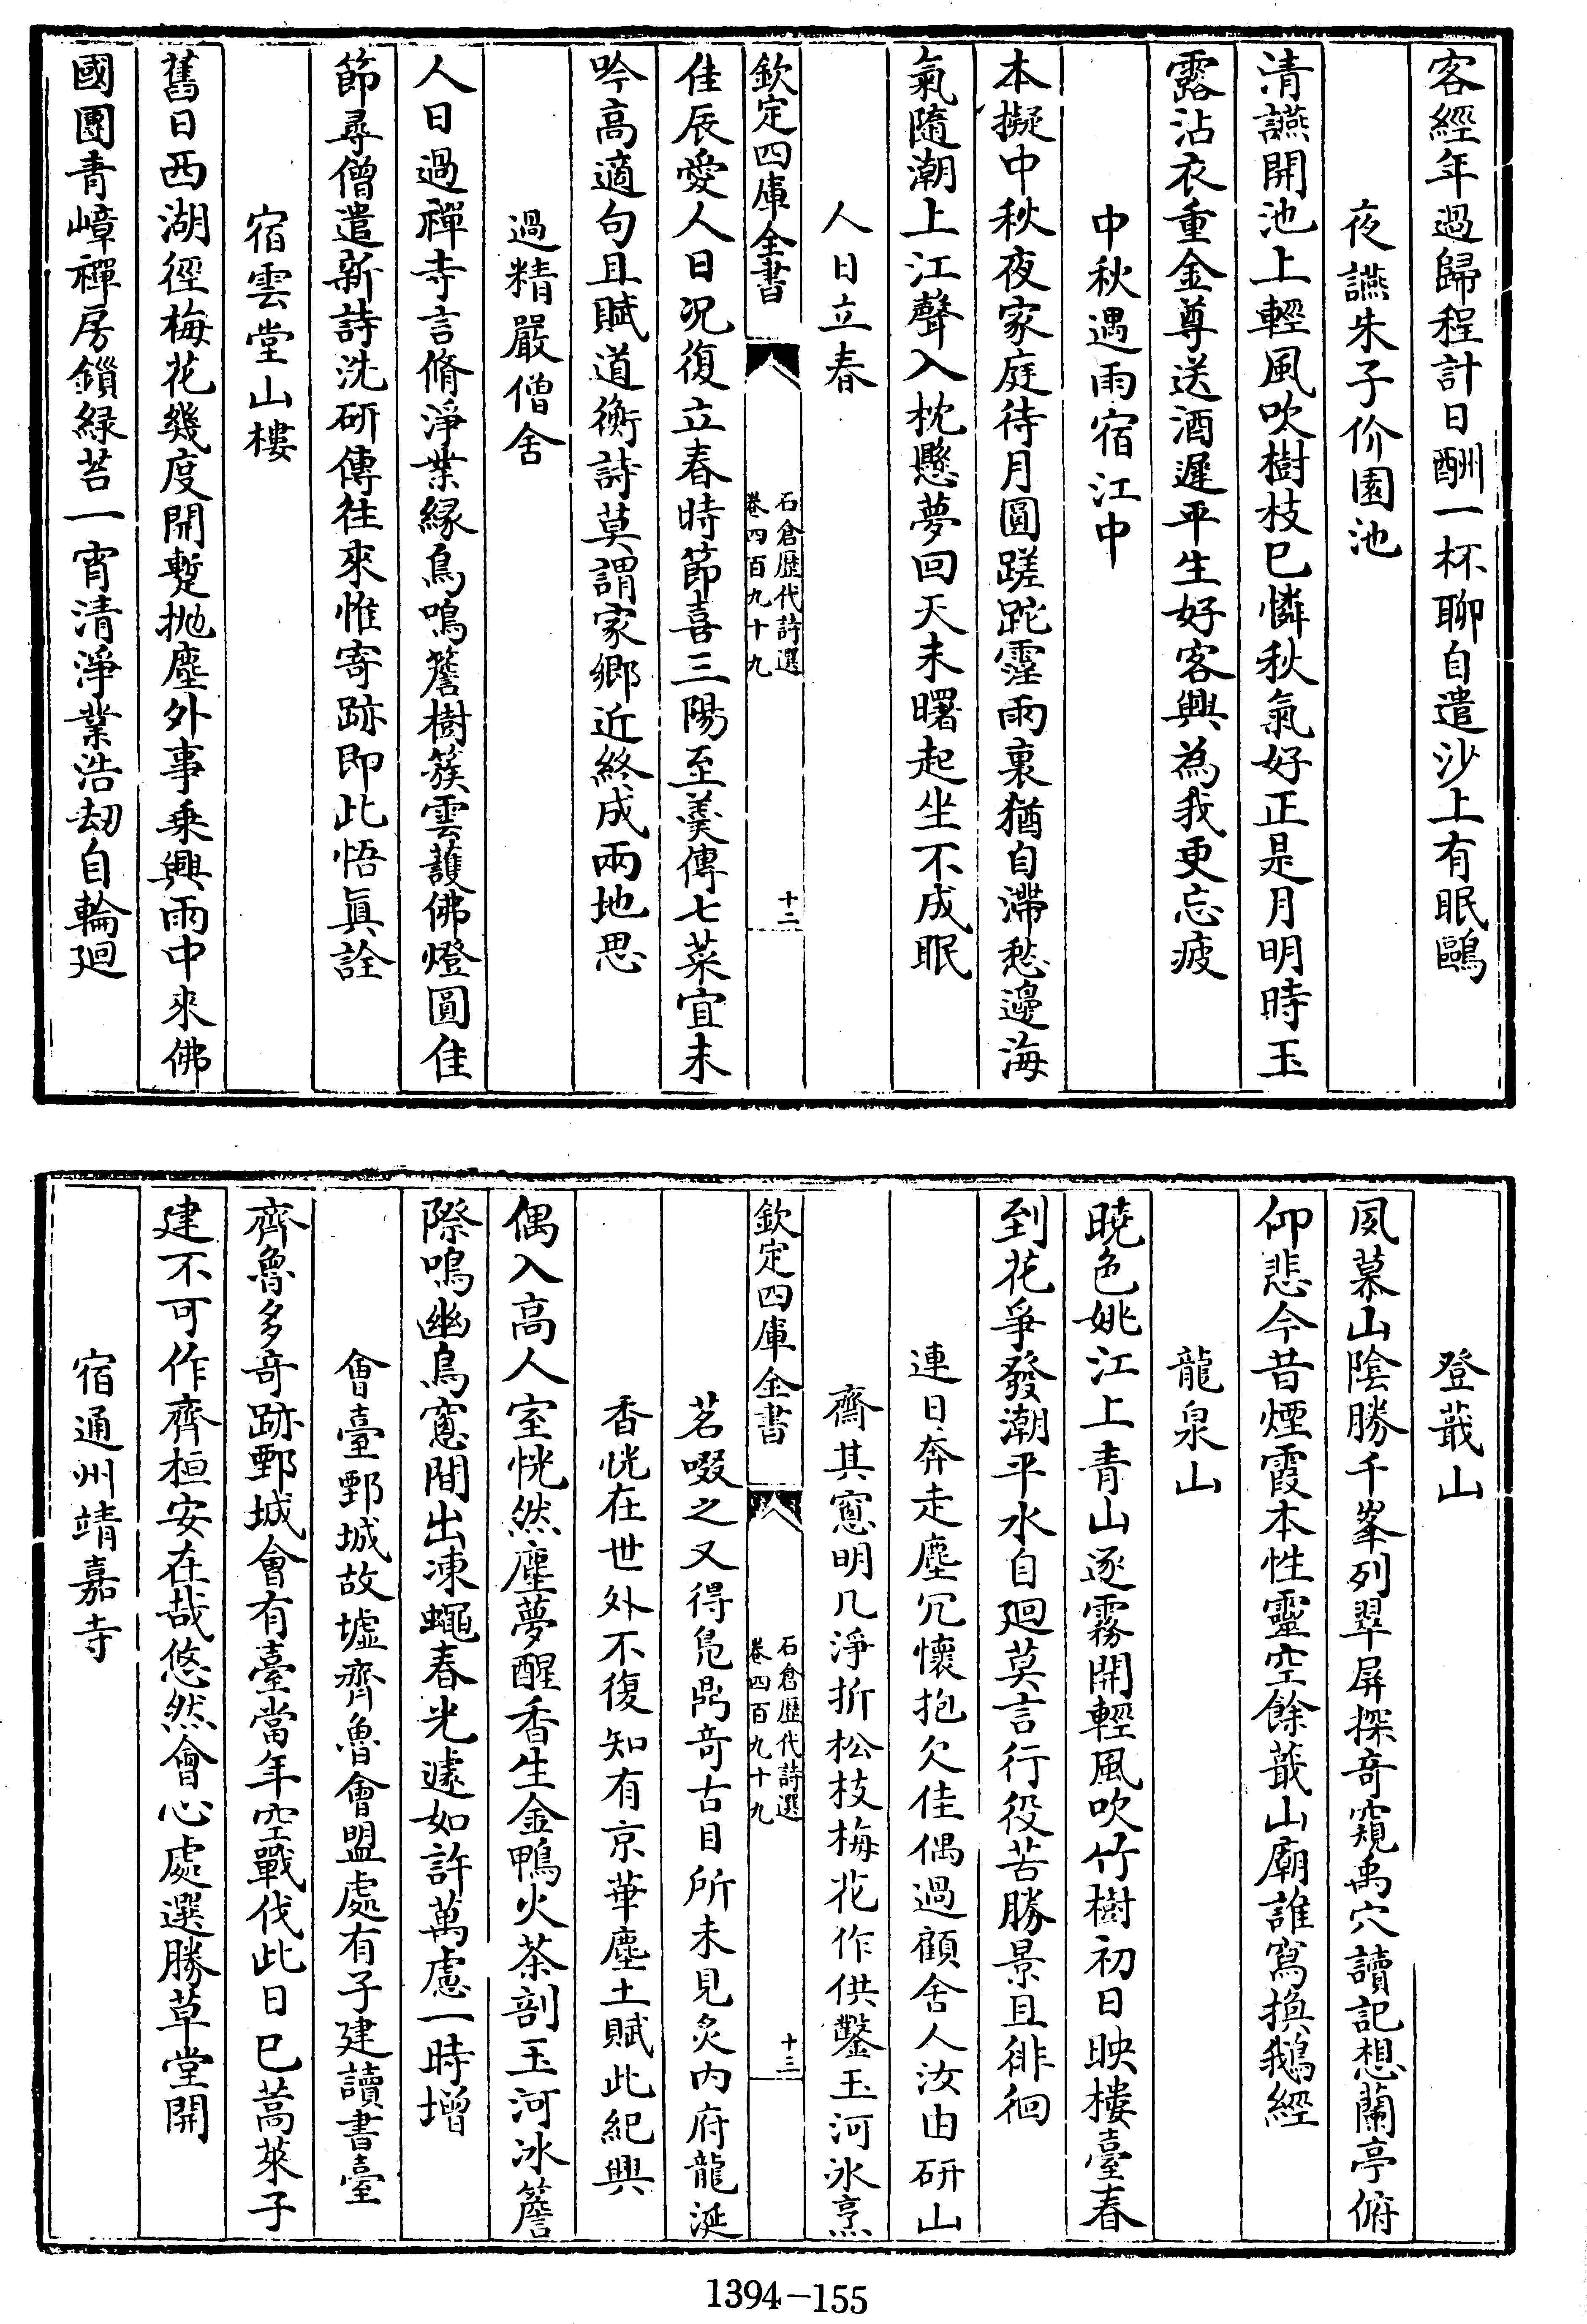 客經年過歸程計日酬一杯聊自遣沙上有眠鷗
夜讌朱子价園池
清讌開池上輕風吹樹枝已憐秋氣好正是月明時玉
露沾衣重金尊送酒遲平生好客興為我更忘疲
中秋遇雨宿江中
本擬中秋夜家庭待月圓蹉跎霪雨裏猶自滯愁邊海
氣隨潮上江聲入枕懸夢回天未曙起坐不成眠
人日立春
欽定四庫全書
石倉歷代詩選
卷四百九十九
十二
佳辰愛人日況復立春時節喜三陽至羮傳七菜宜未
吟高適句且賦道衡詩莫謂家鄉近終成兩地思
過精嚴僧舍
人日過禪寺言脩淨業緣鳥鳴簷樹簇雲䕶佛燈圓佳
節尋僧遣新詩洗研傳往來惟寄跡即此悟真詮
宿雲堂山樓
舊日西湖徑梅花幾度開暫抛塵外事乗興雨中來佛
國團青嶂禪房鎖緑苔一宵清淨業浩刼自輪廻
登蕺山
夙慕山陰勝千峯列翠屏探竒窺禹穴讀記想蘭亭俯
仰悲今昔煙霞本性靈空餘蕺山廟誰寫換鵝經
龍泉山
曉色姚江上青山逐霧開輕風吹竹樹初日映樓臺春
到花爭發潮平水自廻莫言行役苦勝景且徘徊
連日奔走塵冗懷抱欠佳偶過顧舍人汝由研山
齋其窻明几淨折松枝梅花作供鑿玉河冰烹
欽定四庫全書
石倉歷代詩選
卷四百九十九
十三
茗啜之又得鳬鼎竒古目所未見炙内府龍涎
香恍在世外不復知有京華塵土賦此紀興
偶入高人室恍然塵夢醒香生金鴨火茶剖玉河冰簷
際鳴幽鳥窻間出凍蠅春光遽如許萬慮一時增
會臺鄄城故墟齊魯會盟處有子建讀書臺
齊魯多竒跡鄄城會有臺當年空戰伐此日已蒿萊子
建不可作齊桓安在哉悠然會心處選勝草堂開
宿通州靖嘉寺
1394-155